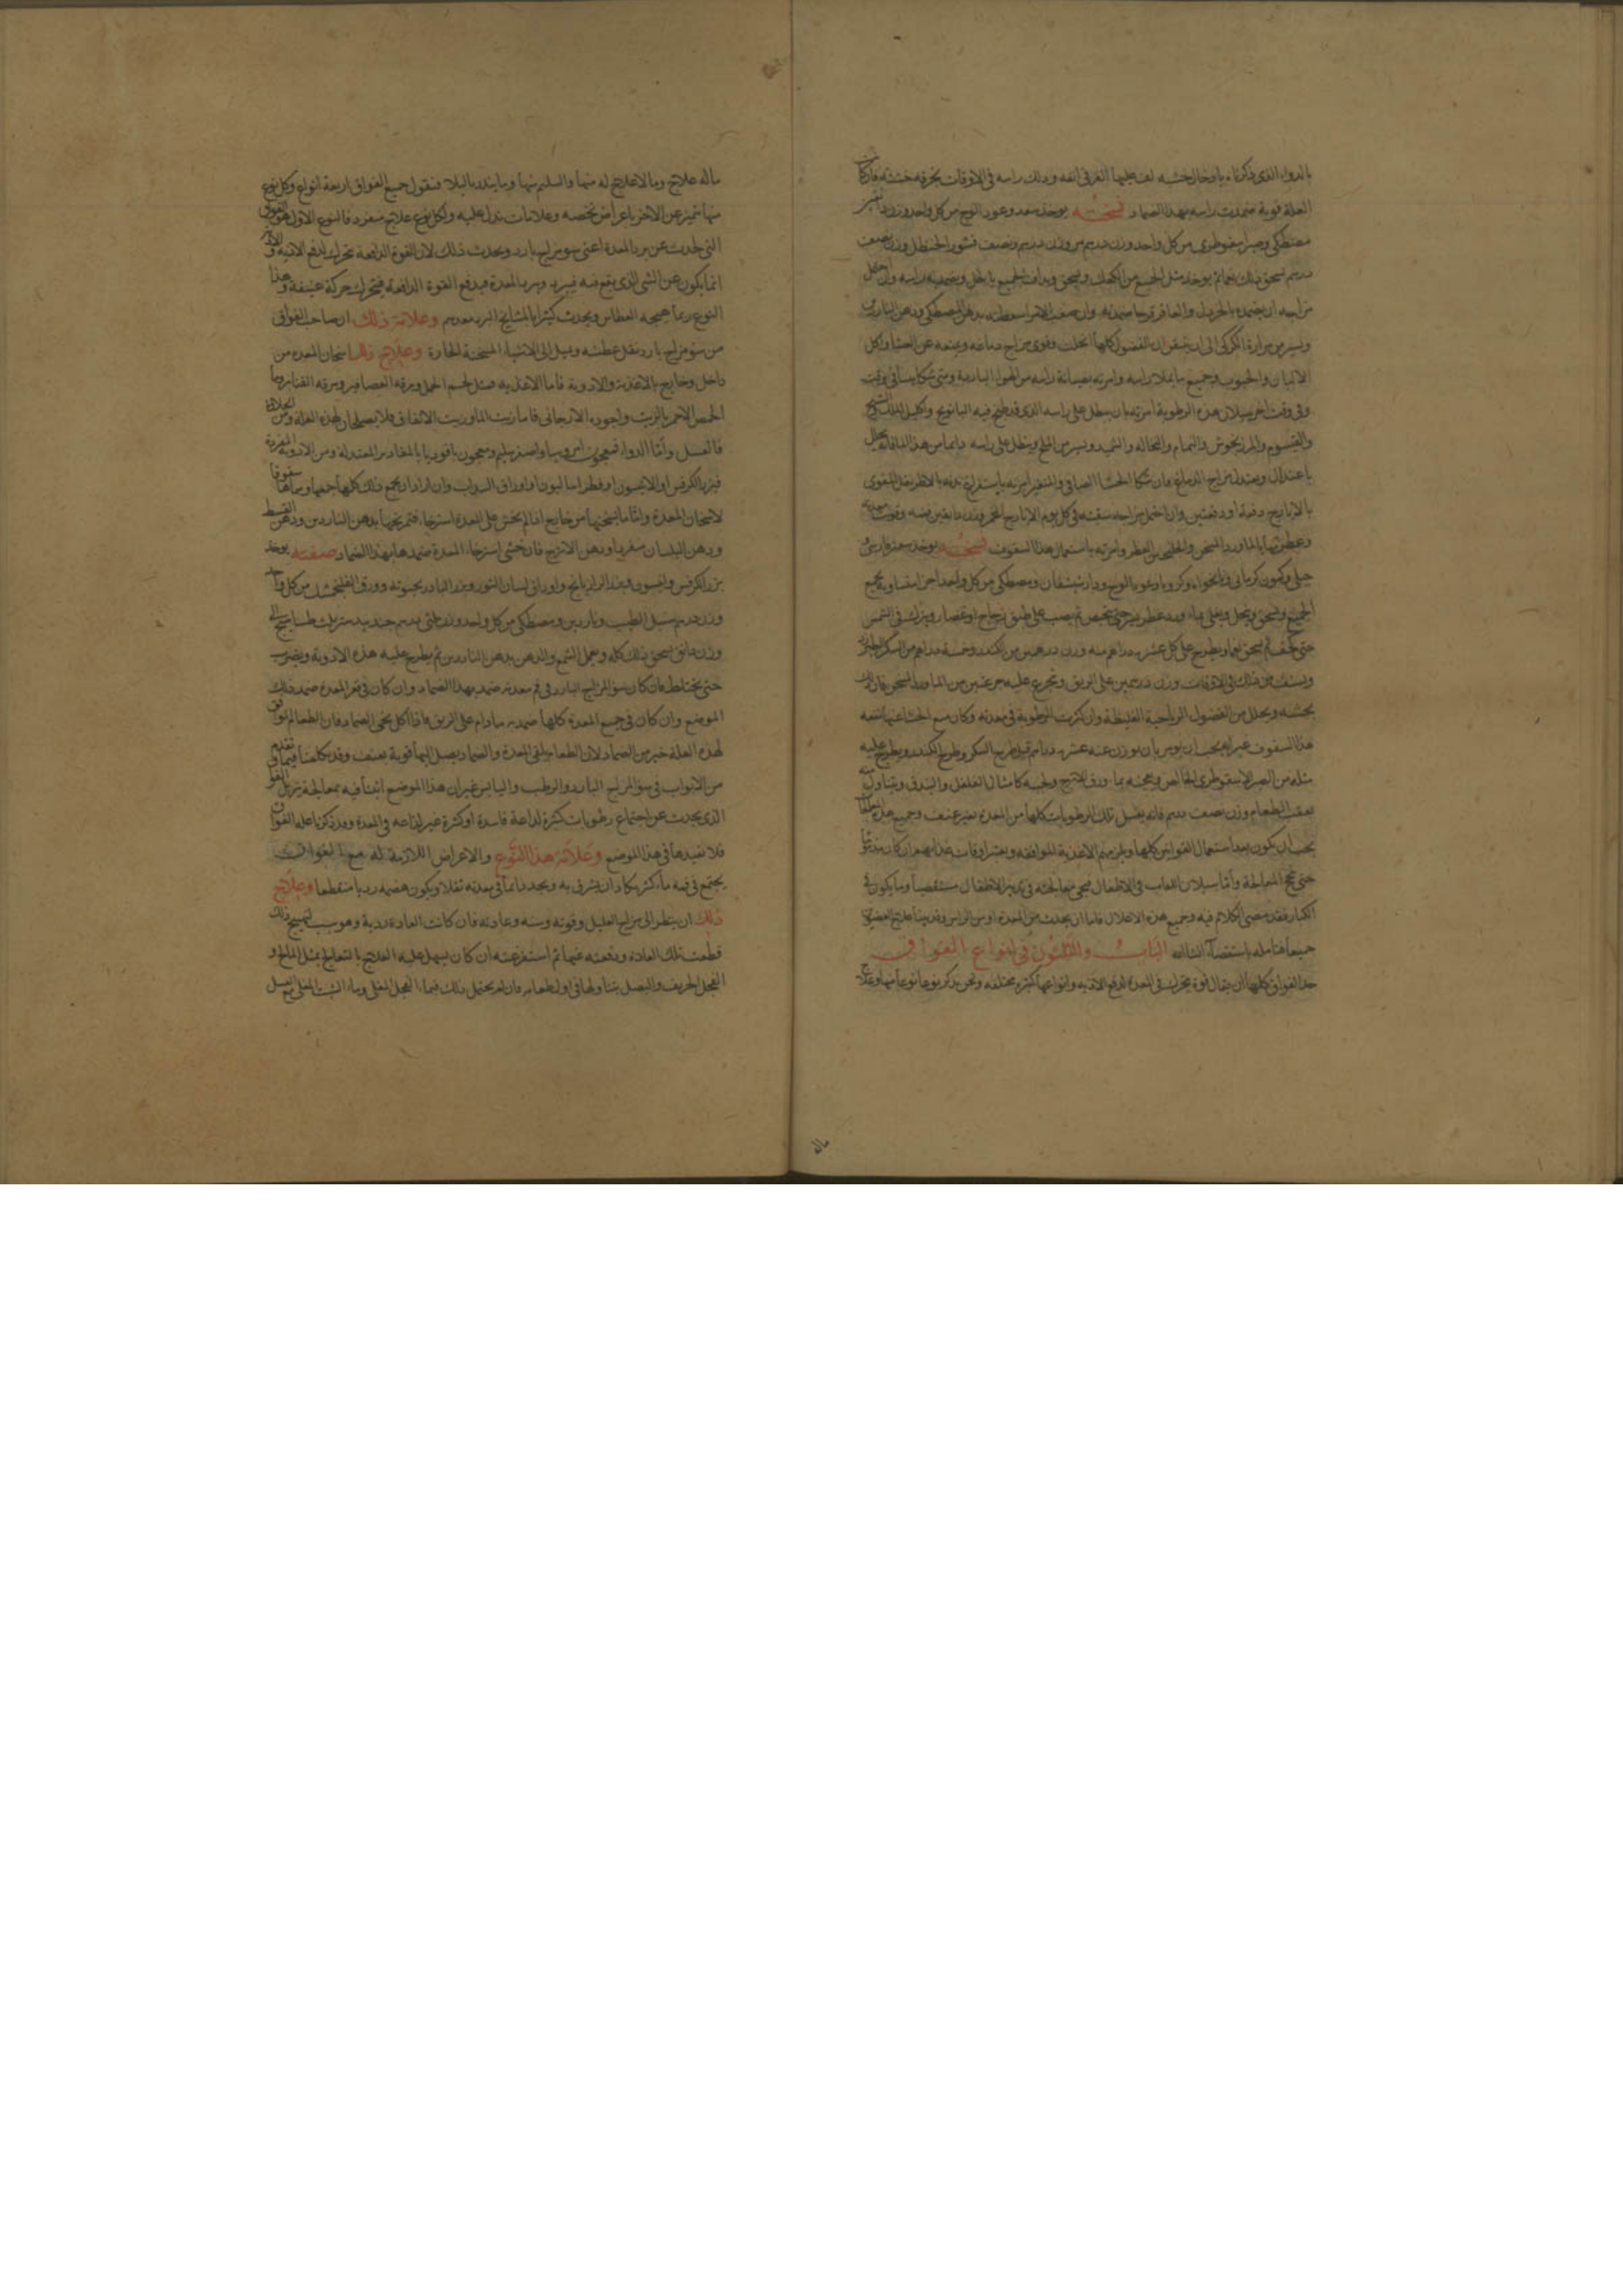 بالدواء الذى ذكرناه بادخال خشبه لف عليها الخرق فى انفه ودلك راسه فى الاوقات بخرقه خشنه فان كانت
العلة قوية ضمدت راسه بهذا الضماد نسخته يوخذ سعد وعود الوج من كل واحد وزن
مصطكى وصبر اسقوطرى من كل واحد وزن درهم مر وزن درهم ونصف قشور الحنظل وزن نصف
درهم يسحق ذلك نعما ثم يوخذ مثل الجميع من الكعك ويسحق ويداف الجميع بالخل ويضمد به راسه وان احتمل
مزاجه ان يضمد بالخردل والعاقرقرحا ضمد به وان صعب الامر اسعطته بدهن المصطكى ودهن الناردين
ويسير من مرارة الكركى الى ان يتيقن ان الفضول كلها انحلت وقوى مزاج دماغه ويمنعه عن العشا واكل
الالبان والحبوب وجميع ما يملا راسه وامرته بصيانة راسه من الهوا الباردة ومتى شكا سيا فى وقت
وفى وقت اخر سيلان هذه الرطوبة امرته بان ينطل على راسه الذى قد طبخ فيه البابونج واكليل الملك والشيح
والقيسوم والمرزنجوش والنمام والنخاله والشبت ويسير من الملح وينطل على راسه دائما من هذا الماء فانه يحلل
باعتدال ويعتدل مزاج الدماغ فان شكا الجشا الصافى والمتغير امرته باستفراغ بدنه بالاطريفل المقوى
بالايارج دفعة او دفعتين وان احتمل مزاجه سقيته فى كل يوم الايارج المخمر وزن دانقين منه وقويت معدته
وعطرتها بالماورد المسخن والخلنجبين العطر وامرته باستعمال هذا السفوف نسخته يوخذ سعتر فارسى و
جبلى وكمون كرمانى ونانخواه وكرويا وعود الوج ودارشيشعان ومصطكى من كل واحد اجزا متساوية يجمع
الجميع ويسحق وينخل ويغلى بماء ورد عطر حتى ينخبص ثم يصب على طبق زجاج او غضار ويترك فى الشمس
حتى يجف ثم يسحق نعما ويطرح على كل عشرة دراهم منه وزن درهمين من الكندر وخمسة دراهم من السكر الطبرزد
ويستف من ذلك فى الاوقات وزن درهمين على الريق ويجرع عليه جرعتين من الماورد المسخن فان ذلك
يجشيه ويحلل من الفضول الرياحية الغليظة وان كثرت الرطوبة فى معدته وكان مع الجشا غثيا نفعه
هذا السفوف غير انه يجب ان يومر بان يوزن عنه عشرة دراهم قبل طرح السكر وطرح الكندر ويطرح عليه
مثله من الصبر الاسقوطرى الخالص ويعجنه بماء ورق الاترج ويحببه كامثال الفلفل والبندق ويتناول منه
بعقب الطعام وزن نصف درهم فانه يغسل تلك الرطوبات كلها من المعدة بغير عنف وجميع هذه
يجب ان يكون بعد استعمال القوانين كلها ويلزمهم الاغذية الموافقه ويعتبر اوقات غذايهم
حتى تنجح المعالجة واما سيلان اللعاب فى الاطفال فيجى معالجته فى تدبير الاطفال مستقصيا وما يكون فى
الكبار فقد مضى الكلام فيه وجميع هذه الاعلال فاما ان يحدث من المعدة او من الراس وقد بينا علاج العضوين
جميعا فتامله باستقصاء ان شا الله الباب والثلثون فى انواع الفواق
حد الفواق كلها ان يقال قوة تتحرك فى المعدة لدفع الاذيه وانواعها كثيرة مختلفه ونحن نذكر نوعا نوعا منها وعلاج
ماله
ماله علاج وما لا علاج له منها والسليم منها وما ينذر بالبلاء فنقول جميع الفواق اربعة انواع وكل نوع
منها يتميز عن الاخر باعراض تخصه وعلامات تدل عليه ولكل نوع علاج مفرد فالنوع الاول هو الفواق
التى يحدث عن برد المعدة اعنى سو مزاج بارد ويحدث ذلك لان القوة الدافعة تتحرك لدفع الاذية و
انما يكون عن الشى الذى يقع منه فيبرد ويبرد المعدة فيدفع القوة الدافعة فيتحرك حركة عنيفة وهذا
النوع ربما هيجه العطاس ويحدث كثيرا بالمشايخ البرد معدهم وعلامة ذلك ان صاحب الفواق
من سو مزاج بارد يقل عطشه ويميل الى الاشياء المسخنة الحارة وعلاج ذلك اسخان المعدة من
داخل وخارج بالاغذية والادوية فاما الاغذيه فمثل لحم الحمل ومرقه العصافير ومرقه القنابر وما
الحمص الاحمر بالزيت واجوده الارجانى فاما زيت الماء وزيت الانفاق فلا يصلحان لهذه العلة ومن الحلاوة
فالعسل واما الدوا فمعجون امروسيا واصفر سليم ومعجون ماقوديا بالمقادير المعتدلة ومن الادوية المفردة
فبزر الكرفس او الانيسون او فطراساليون او اوراق السداب وان اراد ان يجمع ذلك كلها جمعها وسفاها سفوفا
لاسخان المعدة واما ما يسخنها من خارج اذا لم يخش على المعدة استرخا فتمريخها بدهن الناردين ودهن القسط
ودهن البلسان مفردا ودهن الاترج فان خشى استرخاء المعدة ضمدها بهذا الضماد صفته يوخذ
بزر الكرفس وانيسون وبزر الرازيانج واوراق لسان الثور وبزر البادرنجبوية وورق الفلنجمشك من كل واحد
وزن درهم سنبل الطيب وناردين ومصطكى من كل واحد وزن ثلثى درهم جندبيدستر
وزن دانق يسحق ذلك كله ويحمل الشمع والدهن بدهن الناردين ثم يطرح عليه هذه الادوية ويضرب
حتى يختلط فان كان سو المزاج البارد فى فم معدته ضمد بهذا الضماد وان كان فى قعر المعدة ضمد ذلك
الموضع وان كان فى جميع المعدة كلها ضمد به مادام على الريق فاذا اكل نحى الضماد فان الطعام الموافق
لهذه العلة خير من الضماد لان الطعام يلقى المعدة والضماد يصل اليها قوية بضعف وقد تكلمنا فيما تقدم فى
من الابواب فى سو المزاج البارد والرطب واليابس غير ان هذا الموضع اتينا فيه بمعالجة تزيل الفواق
الذى يحدث عن اجتماع رطوبات كثيرة لذاعة فاسدة او كثرة غير لذاعه فى المعدة وقد ذكرنا علة الفواق
فلا نعيدها فى هذا الموضع وعلامة هذا النوع والاعراض اللازمة له مع الفواق
يجتمع فى فمه ماء كثير يكاد ان يشرق به ويجد دائما فى معدته ثقلا ويكون هضمه رديا منقطعا وعلاج
ذلك ان ينظر الى مزاج العليل وقوته وسنه وعادته فان كانت العادة ردية وهو سبب تهييج ذلك
قطعت تلك العادة ودفعته عنها ثم استفرغته ان كان يسهل عليه العلاج بالتعالج بمثل المالح و
الفجل الحريف والبصل يتناولها فى اول طعامه فان لم يحتمل ذلك فبماء الفجل المغلى وماء الشبت المغلى مع العسل